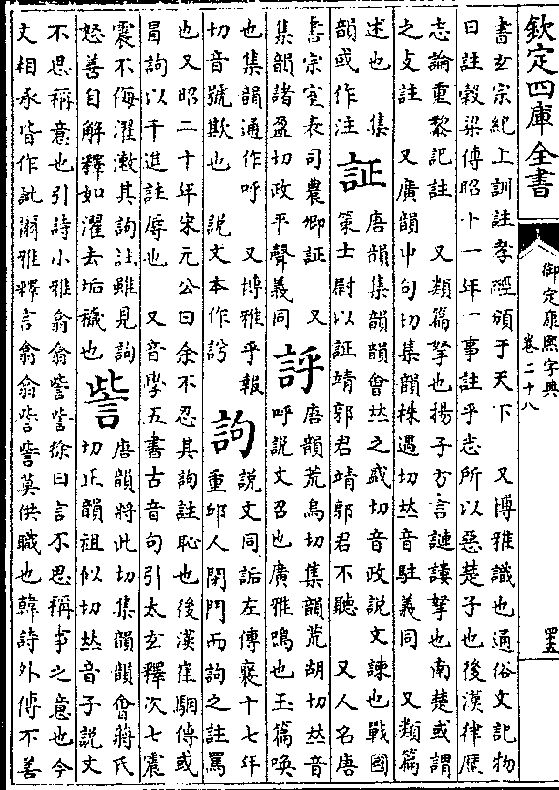 欽定四庫全書
御定康熙字典
卷二十八
書玄宗紀上訓註孝經頒于天下 又博雅識也通俗文記物
曰註穀梁傳昭十一年一事註乎志所以惡楚子也後漢律厯
志論重黎記註 又類篇拏也揚子方言謰謱拏也南楚或謂
之支註 又廣韻中句切集韻株遇切𠀤音駐義同 又類篇
述也 集
韻或作注
証
唐韻集韻韻會𠀤之盛切音政說文諫也戰國
策士尉以証靖郭君靖郭君不聽 又人名唐
書宗室表司農卿証 又
集韻諸盈切政平聲義同
𧦝
唐韻荒烏切集韻荒胡切𠀤音
呼說文召也廣雅鳴也玉篇喚
也集韻通作呼 又博雅乎報
切音號欺也 說文本作
訽
說文同詬左傳襄十七年
重邱人閉門而訽之註罵
也又昭二十年宋元公曰余不忍其訽註恥也後漢崔駰傳或
冐訽以干進註辱也 又音學五書古音句引太玄釋次七震
震不侮濯漱其訽註雖見訽
怒善自解釋如濯去垢穢也
訾
唐韻將此切集韻韻會蔣氏
切正韻祖似切𠀤音子說文
不思稱意也引詩小雅翕翕訾訾徐曰言不思稱事之意也今
文相承皆作訿爾雅釋言翕翕訾訾莫供職也韓詩外傳不善